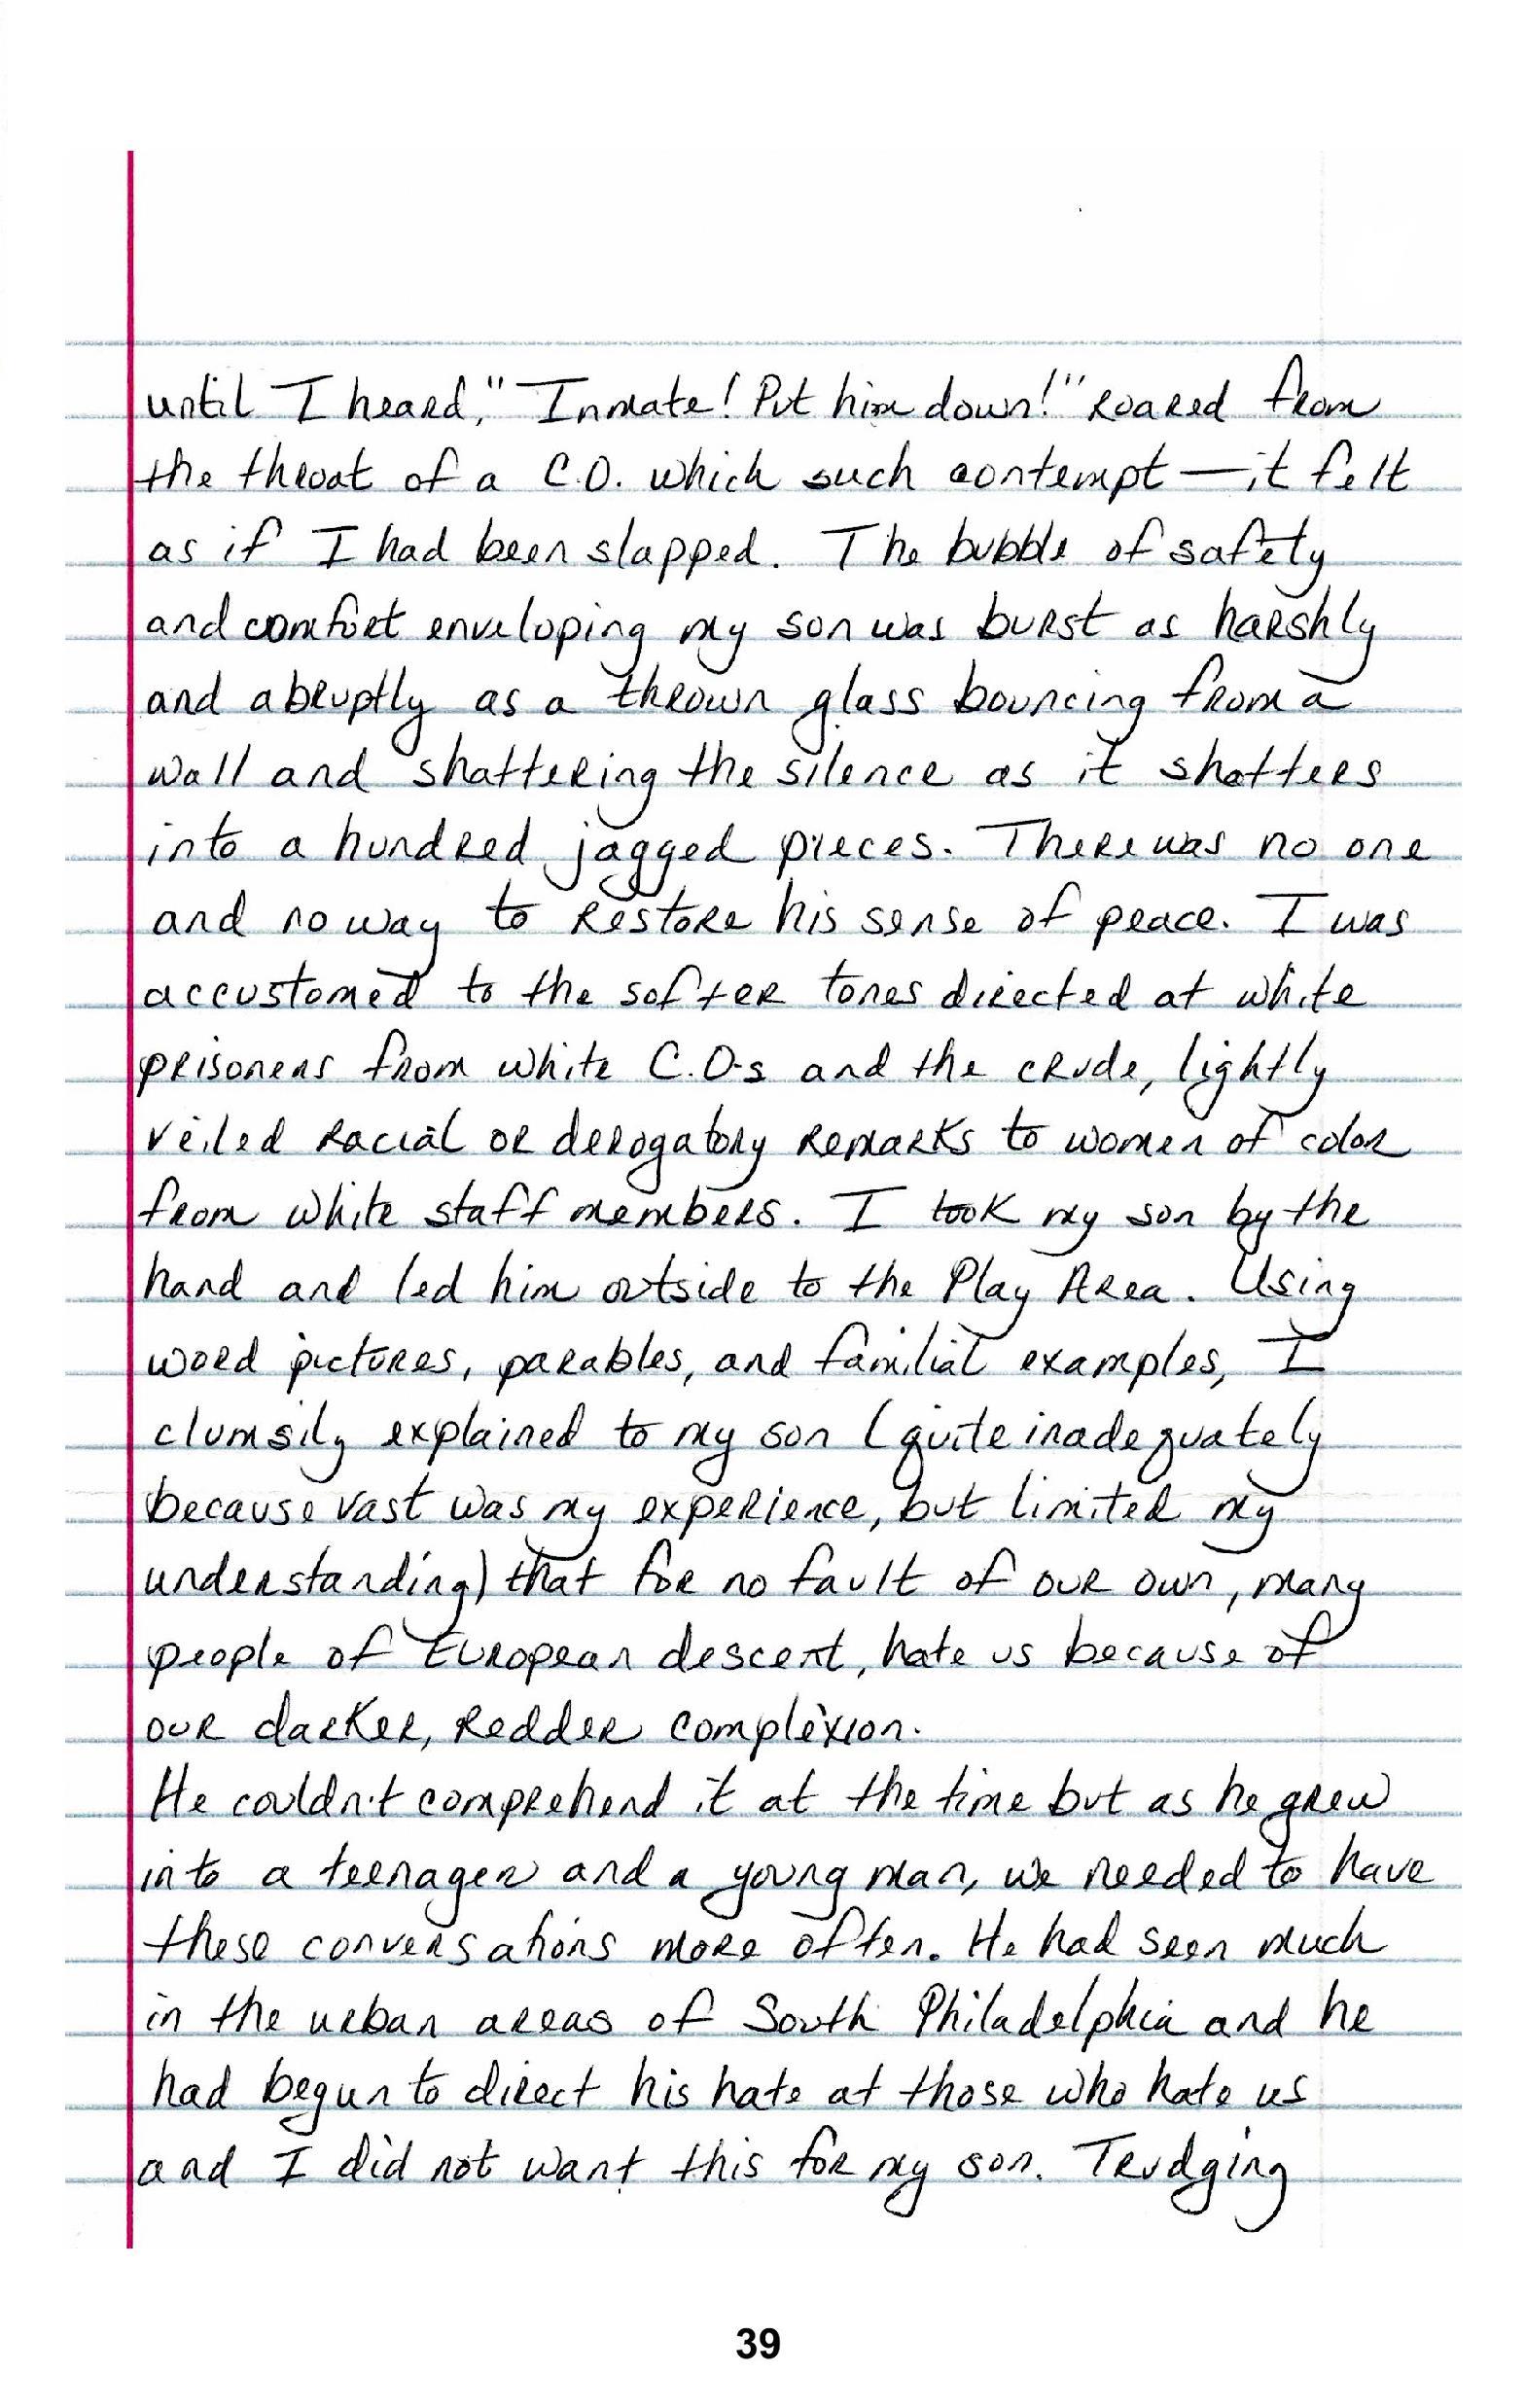 until I heard, "Inmate! Put him down!" roared from
the throat of a C.O. which such contempt — it felt
as if I had been slapped. The bubble of safety
and comfort enveloping my son was burst as harshly
and abruptly as a thrown glass bouncing from a
wall and shattering the silence as it shatters
into a hundred jagged pieces. There was no one
and no way to restore his sense of peace. I was
accustomed to the softer tones directed at white
prisoners from white C.O.s and the crude, lightly
veiled racial or derogatory remarks to women of color
from white staff members. I took my son by the
hand and led him outside to the Play Area. Using
word pictures, parables, and familial examples, I
clumsily explained to my son (quite inadequately
because vast was my experience, but limited my
understanding) that for no fault of our own, many
people of European descent, hate us because of
our darker, redder complexion.
He couldn't comprehend it at the time but as he grew
into a teenager and a young man, we needed to have
these conversations more often. He had seen much
in the urban areas of South Philadelphia and he
had begun to direct his hate at those who hate us
and I did not want this for my son. Trudging
39